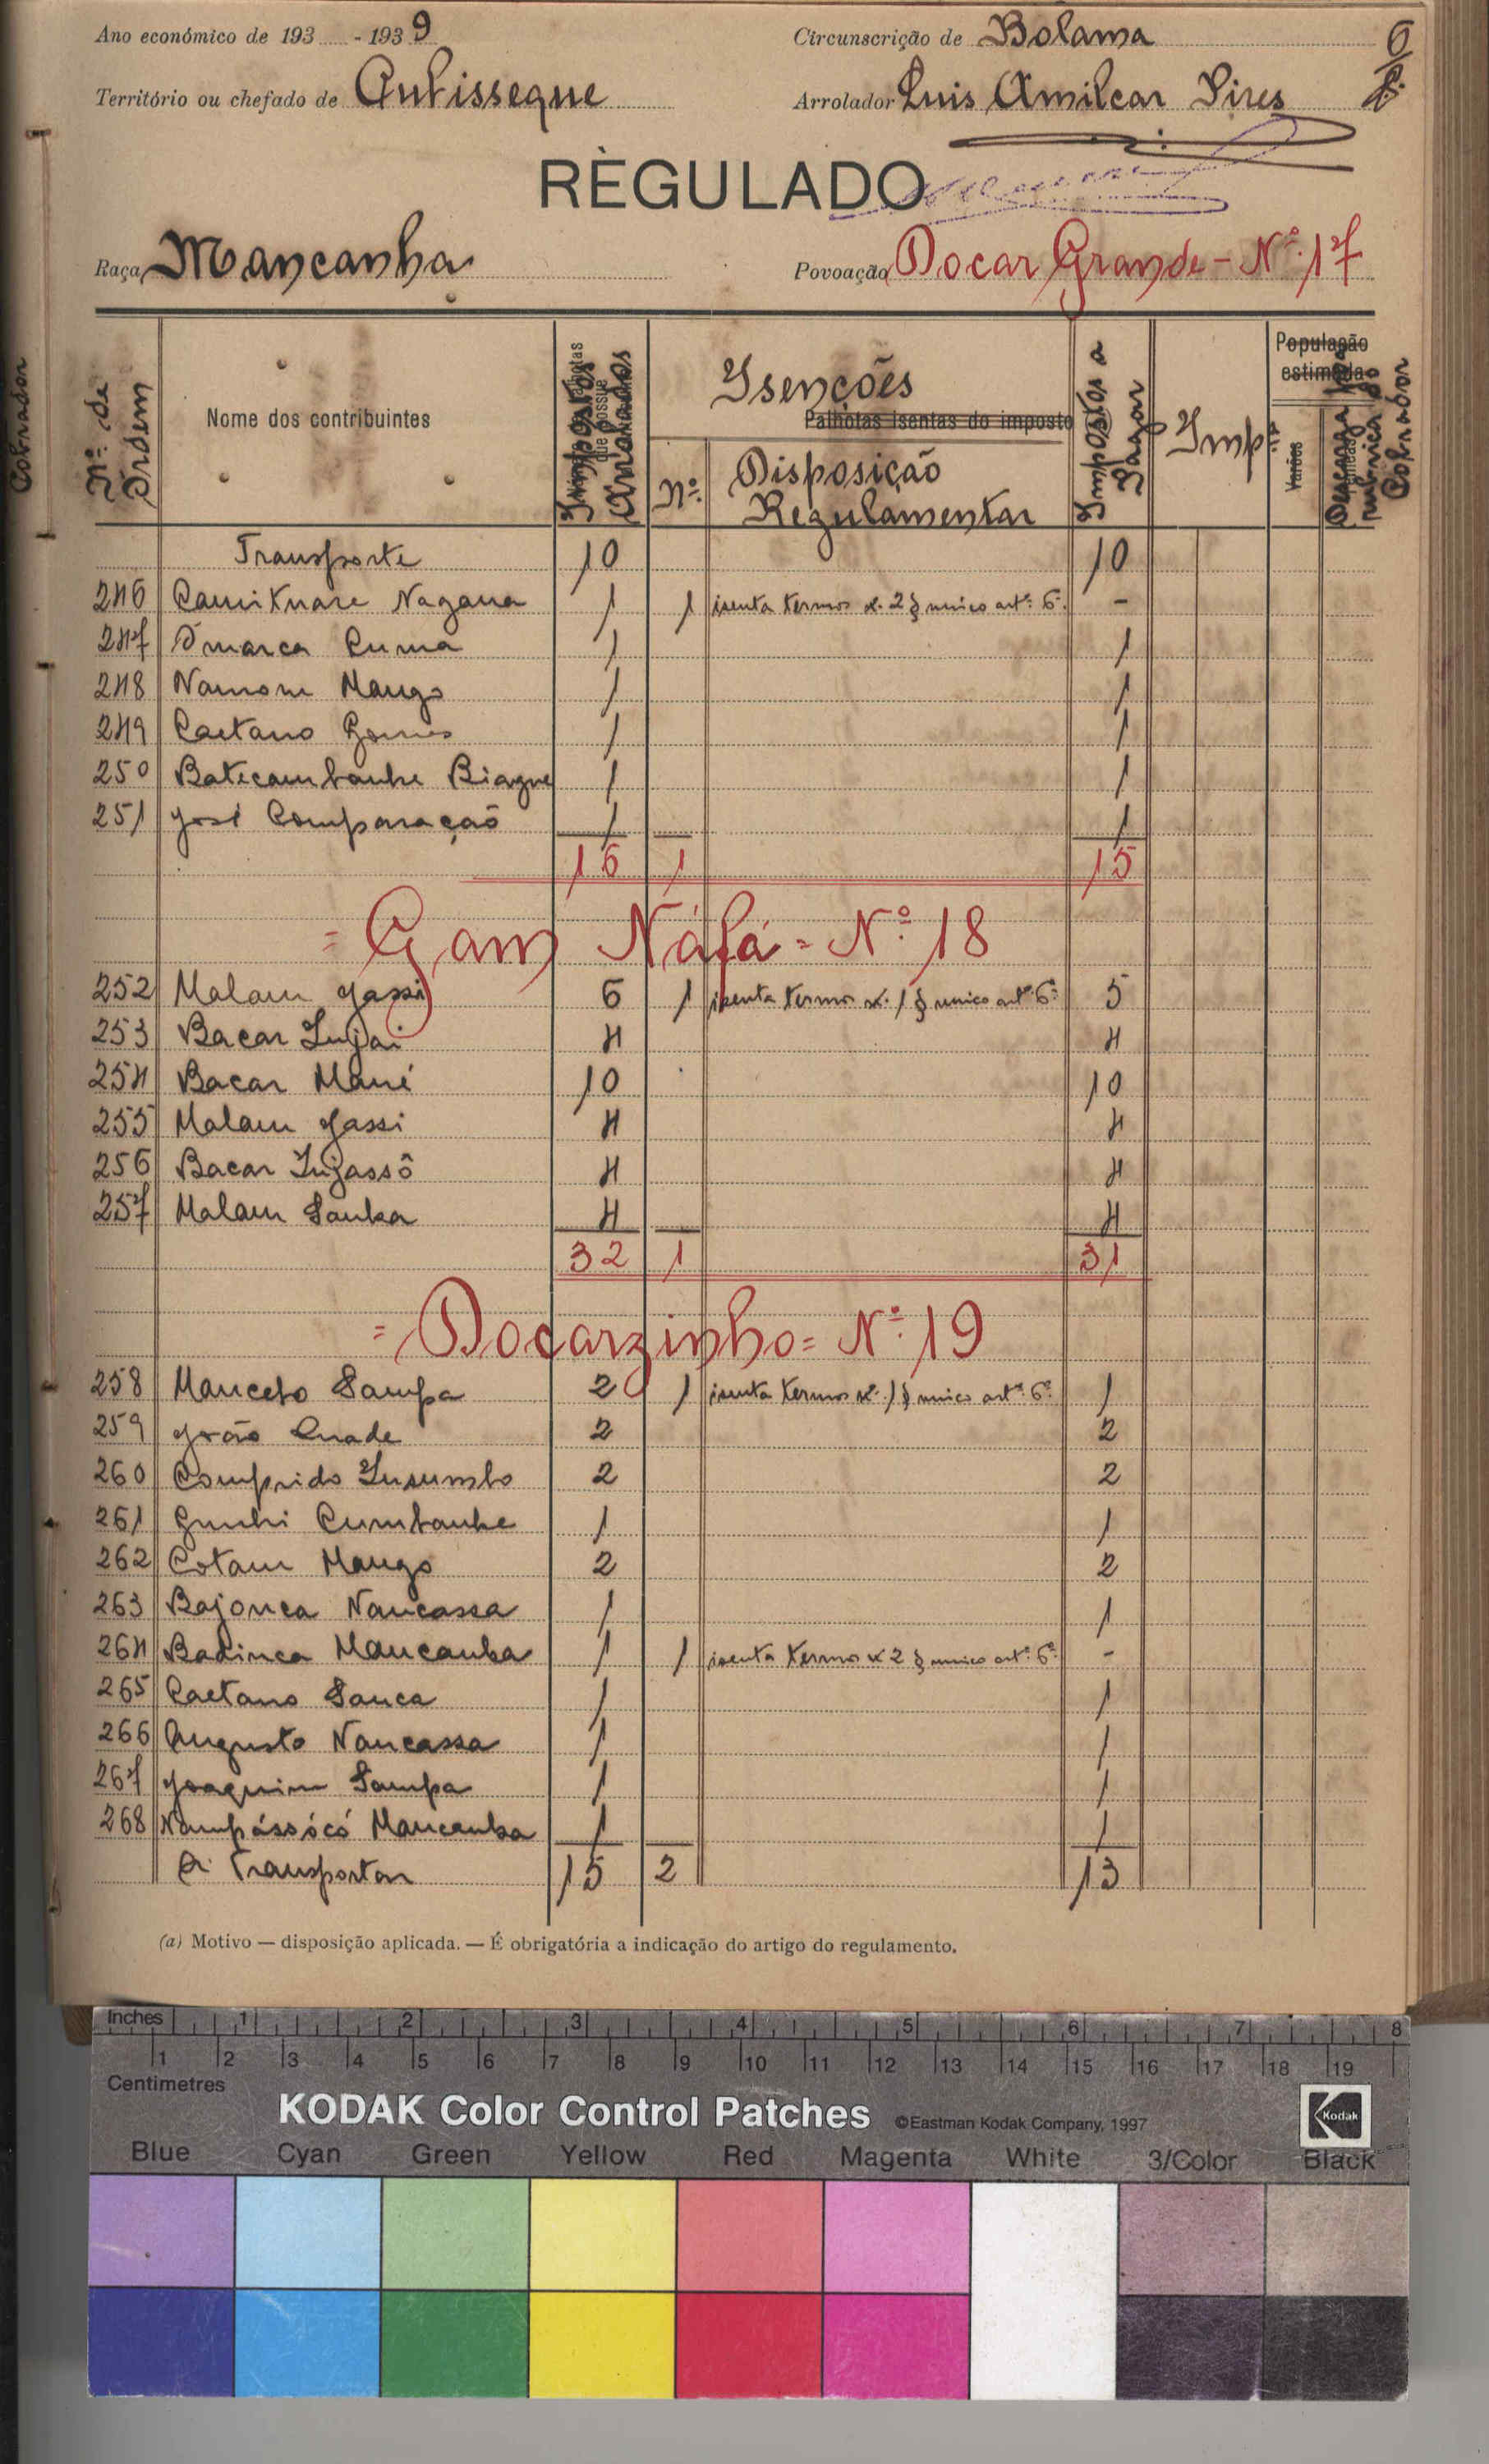 Ano económico de 193 - 1939
Circunscrição de Bolama
6
Território ou chefado de Cubisseque
Arrolador Luis Amilcar Pires
RÈGULADO
Raça Mancanha
Povoação Docar Grande - Nº. 17
Cobrador
Nº. de Ordem
Nome dos contribuintes
Impostos Arrolados
Isenções
Palhotas isentas do imposto
Nº.
Disposição Regulamentar
Impostos a Pagar
Imp.
População estimada
Varões
Descarga rubrica do Cobrador
Transporte 10 10
246 Nagana 1 1 isenta termos al. 2 § unico artº. 6º. -
247 Omarca Cuma 1 1
248 Namom Mango 1 1
249 Caetano Gomes 1 1
250 Batecambanhe Biague 1 1
251 José Comparação 1 1
16 1 15
= Gam Náfá = Nº. 18
252 Malam Jassi 6 1 isenta termos al. 1 § unico artº. 6º. 5
253 Bacar Injai 4 4
254 Bacar Mané 10 10
255 Malam Jassi 4 4
256 Bacar Injassô 4 4
257 Malam Sanha 4 4
32 1 31
= Docarzinho = Nº. 19
258 Manceto Sampa 2 1 isenta termos al. 1 § unico artº. 6º. 1
259 João Quade 2 2
260 Comprido Insumbo 2 2
261 Cumbanhe 1 1
262 Cotam Mango 2 2
263 Bajonca Nancassa 1 1
264 Badinca Mancanha 1 1 isenta termos al 2 § unico artº. 6º. -
265 Caetano Sanca 1 1
266 Augusto Nancassa 1 1
267 Joaquim Sampa 1 1
268 Nampássócó Mancanha 1 1
A Transportar 15 2 13
(a) Motivo — disposição aplicada. — É obrigatória a indicação do artigo do regulamento.
Inches 1 2 3 4 5 6 7 8
1 2 3 4 5 6 7 8 9 10 11 12 13 14 15 16 17 18 19
Centimetres
KODAK Color Control Patches ©Eastman Kodak Company, 1997
Kodak
Blue Cyan Green Yellow Red Magenta White 3/Color Black